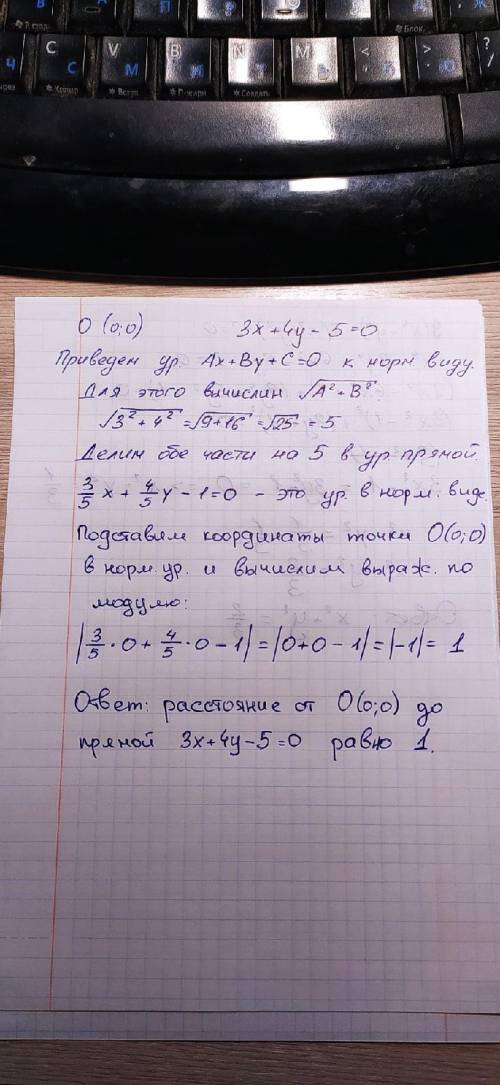 O (0;0) 3x+4y-5=0
Приведем ур. Ax+By+C=0 к норм. виду.
Для этого вычислим √(A²+B²)
√(3²+4²)=√(9+16)=√25=5
Делим обе части на 5 в ур. прямой.
3/5 x + 4/5 y - 1=0 - это ур. в норм. виде.
Подставим координаты точки O(0;0)
в норм. ур. и вычислим выраж. по
модулю:
|3/5 · 0 + 4/5 · 0 - 1| = |0+0-1| = |-1| = 1
Ответ: расстояние от O(0;0) до
прямой 3x+4y-5=0 равно 1.